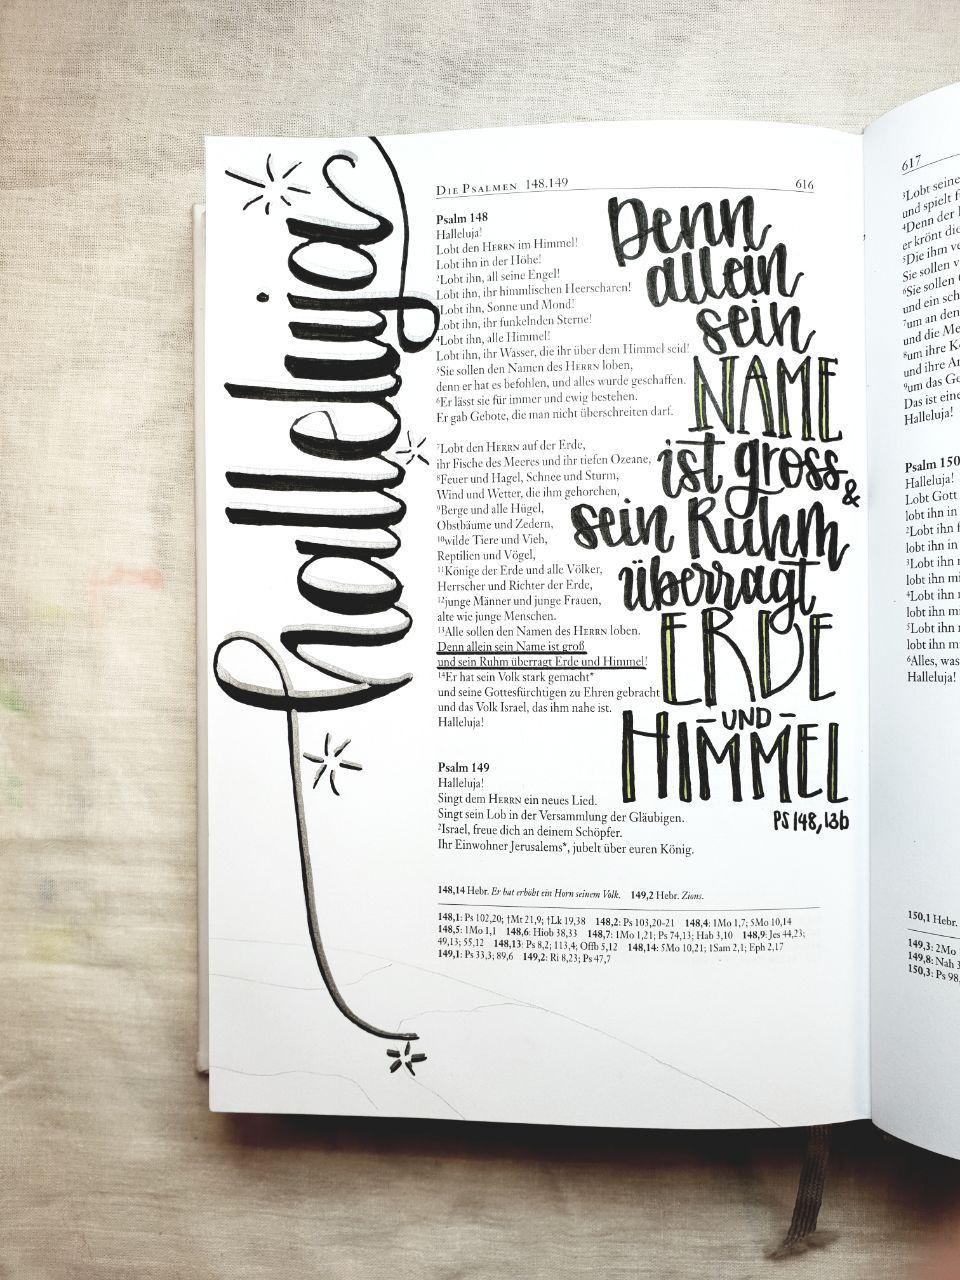 halleluja
DIE PSALMEN 148.149 616
Psalm 148
Halleluja!
Lobt den HERRN im Himmel!
Lobt ihn in der Höhe!
²Lobt ihn, all seine Engel!
Lobt ihn, ihr himmlischen Heerscharen!
³Lobt ihn, Sonne und Mond!
Lobt ihn, ihr funkelnden Sterne!
⁴Lobt ihn, alle Himmel!
Lobt ihn, ihr Wasser, die ihr über dem Himmel seid!
⁵Sie sollen den Namen des HERRN loben,
denn er hat es befohlen, und alles wurde geschaffen.
⁶Er lässt sie für immer und ewig bestehen.
Er gab Gebote, die man nicht überschreiten darf.
⁷Lobt den HERRN auf der Erde,
ihr Fische des Meeres und ihr tiefen Ozeane,
⁸Feuer und Hagel, Schnee und Sturm,
Wind und Wetter, die ihm gehorchen,
⁹Berge und alle Hügel,
Obstbäume und Zedern,
¹⁰wilde Tiere und Vieh,
Reptilien und Vögel,
¹¹Könige der Erde und alle Völker,
Herrscher und Richter der Erde,
¹²junge Männer und junge Frauen,
alte wie junge Menschen.
¹³Alle sollen den Namen des HERRN loben.
Denn allein sein Name ist groß
und sein Ruhm überragt Erde und Himmel!
¹⁴Er hat sein Volk stark gemacht*
und seine Gottesfürchtigen zu Ehren gebracht
und das Volk Israel, das ihm nahe ist.
Halleluja!
Psalm 149
Halleluja!
Singt dem HERRN ein neues Lied.
Singt sein Lob in der Versammlung der Gläubigen.
²Israel, freue dich an deinem Schöpfer.
Ihr Einwohner Jerusalems*, jubelt über euren König.
148,14 Hebr. Er hat erhöht ein Horn seinem Volk. 149,2 Hebr. Zions.
148,1: Ps 102,20; †Mt 21,9; †Lk 19,38 148,2: Ps 103,20-21 148,4: 1Mo 1,7; 5Mo 10,14
148,5: 1Mo 1,1 148,6: Hiob 38,33 148,7: 1Mo 1,21; Ps 74,13; Hab 3,10 148,9: Jes 44,23;
49,13; 55,12 148,13: Ps 8,2; 113,4; Offb 5,12 148,14: 5Mo 10,21; 1Sam 2,1; Eph 2,17
149,1: Ps 33,3; 89,6 149,2: Ri 8,23; Ps 47,7
Denn
allein
sein
NAME
ist gross
&
sein Ruhm
überragt
ERDE
UND
HIMMEL
PS 148,13b
617
³Lobt seine
und spielt
⁴Denn der
er krönt die
⁵Die ihm
Sie sollen
⁶Sie sollen
und ein
⁷um an den
und die
⁸um ihre
und ihre
⁹um das
Das ist eine
Halleluja!
Psalm 150
Halleluja!
Lobt Gott
lobt ihn in
²Lobt ihn
lobt ihn
³Lobt ihn
lobt ihn
⁴Lobt ihn
lobt ihn
⁵Lobt ihn
lobt ihn
⁶Alles, was
Halleluja!
150,1 Hebr.
149,3: 2Mo
149,8: Nah
150,3: Ps 98,